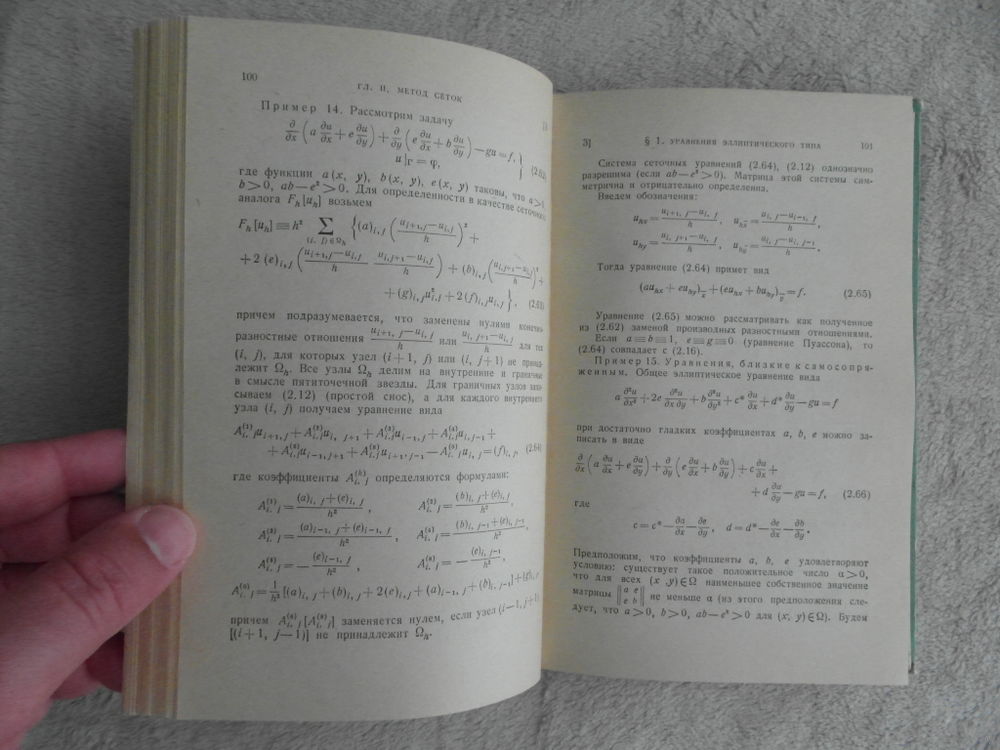 100
ГЛ. II. МЕТОД СЕТОК
Пример 14. Рассмотрим задачу
∂/∂x (a ∂u/∂x + e ∂u/∂y) + ∂/∂y (e ∂u/∂x + b ∂u/∂y) — gu = f,
u|Γ = φ,
где функции a (x, y), b (x, y), e (x, y) таковы, что a > 0,
b > 0, ab — e² > 0. Для определенности в качестве сеточного
аналога F_h [u_h] возьмем
F_h [u_h] ≡ h² ∑_{(i, j)∈Ω_h} {(a)_{i, j} ((u_{i+1, j} — u_{i, j})/h)² +
+ 2 (e)_{i, j} ((u_{i+1, j} — u_{i, j})/h (u_{i, j+1} — u_{i, j})/h) + (b)_{i, j} ((u_{i, j+1} — u_{i, j})/h)² +
+ (g)_{i, j} u²_{i, j} + 2 (f)_{i, j} u_{i, j}},
причем подразумевается, что заменены нулями
разностные отношения (u_{i+1, j} — u_{i, j})/h или (u_{i, j+1} — u_{i, j})/h для тех
(i, j), для которых узел (i + 1, j) или (i, j + 1) не принад-
лежит Ω_h. Все узлы Ω_h делим на внутренние и граничные
в смысле пятиточечной звезды. Для граничных узлов запи-
сываем (2.12) (простой снос), а для каждого внутреннего
узла (i, j) получаем уравнение вида
A^{(1)}_{i, j} u_{i+1, j} + A^{(2)}_{i, j} u_{i, j+1} + A^{(3)}_{i, j} u_{i—1, j} + A^{(4)}_{i, j} u_{i, j—1} +
+ A^{(5)}_{i, j} u_{i—1, j+1} + A^{(6)}_{i, j} u_{i+1, j—1} — A^{(0)}_{i, j} u_{i, j} = (f)_{i, j}, (2.64)
где коэффициенты A^{(k)}_{i, j} определяются формулами:
A^{(1)}_{i, j} = ((a)_{i, j} + (e)_{i, j})/h², A^{(2)}_{i, j} = ((b)_{i, j} + (e)_{i, j})/h²,
A^{(3)}_{i, j} = ((a)_{i—1, j} + (e)_{i—1, j})/h², A^{(4)}_{i, j} = ((b)_{i, j—1} + (e)_{i, j—1})/h²,
A^{(5)}_{i, j} = — (e)_{i—1, j}/h², A^{(6)}_{i, j} = — (e)_{i, j—1}/h²,
A^{(0)}_{i, j} = 1/h² [(a)_{i, j} + (b)_{i, j} + 2 (e)_{i, j} + (a)_{i—1, j} + (b)_{i, j—1}] + (g)_{i, j},
причем A^{(5)}_{i, j} [A^{(6)}_{i, j}] заменяется нулем, если узел (i — 1, j + 1)
[(i + 1, j — 1)] не принадлежит Ω_h.
3]
§ 1. УРАВНЕНИЯ ЭЛЛИПТИЧЕСКОГО ТИПА
101
Система сеточных уравнений (2.64), (2.12) однозначно
разрешима (если ab — e² > 0). Матрица этой системы сим-
метрична и отрицательно определенна.
Введем обозначения:
u_{hx} = (u_{i+1, j} — u_{i, j})/h, u_{hx̄} = (u_{i, j} — u_{i—1, j})/h,
u_{hy} = (u_{i, j+1} — u_{i, j})/h, u_{hȳ} = (u_{i, j} — u_{i, j—1})/h.
Тогда уравнение (2.64) примет вид
(au_{hx} + eu_{hy})_{x̄} + (eu_{hx} + bu_{hy})_{ȳ} = f. (2.65)
Уравнение (2.65) можно рассматривать как полученное
из (2.62) заменой производных разностными отношениями.
Если a ≡ b ≡ 1, e ≡ g ≡ 0 (уравнение Пуассона), то
(2.64) совпадает с (2.16).
Пример 15. Уравнения, близкие к самосопря-
женным. Общее эллиптическое уравнение вида
a ∂²u/∂x² + 2e ∂²u/∂x ∂y + b ∂²u/∂y² + c* ∂u/∂x + d* ∂u/∂y — gu = f
при достаточно гладких коэффициентах a, b, e можно за-
писать в виде
∂/∂x (a ∂u/∂x + e ∂u/∂y) + ∂/∂y (e ∂u/∂x + b ∂u/∂y) + c ∂u/∂x +
+ d ∂u/∂y — gu = f, (2.66)
где
c = c* — ∂a/∂x — ∂e/∂y, d = d* — ∂e/∂x — ∂b/∂y.
Предположим, что коэффициенты a, b, e удовлетворяют
условию: существует такое положительное число α > 0,
что для всех (x ,y) ∈ Ω наименьшее собственное значение
матрицы ‖a e / e b‖ не меньше α (из этого предположения сле-
дует, что a > 0, b > 0, ab — e² > 0 для (x, y) ∈ Ω). Будем